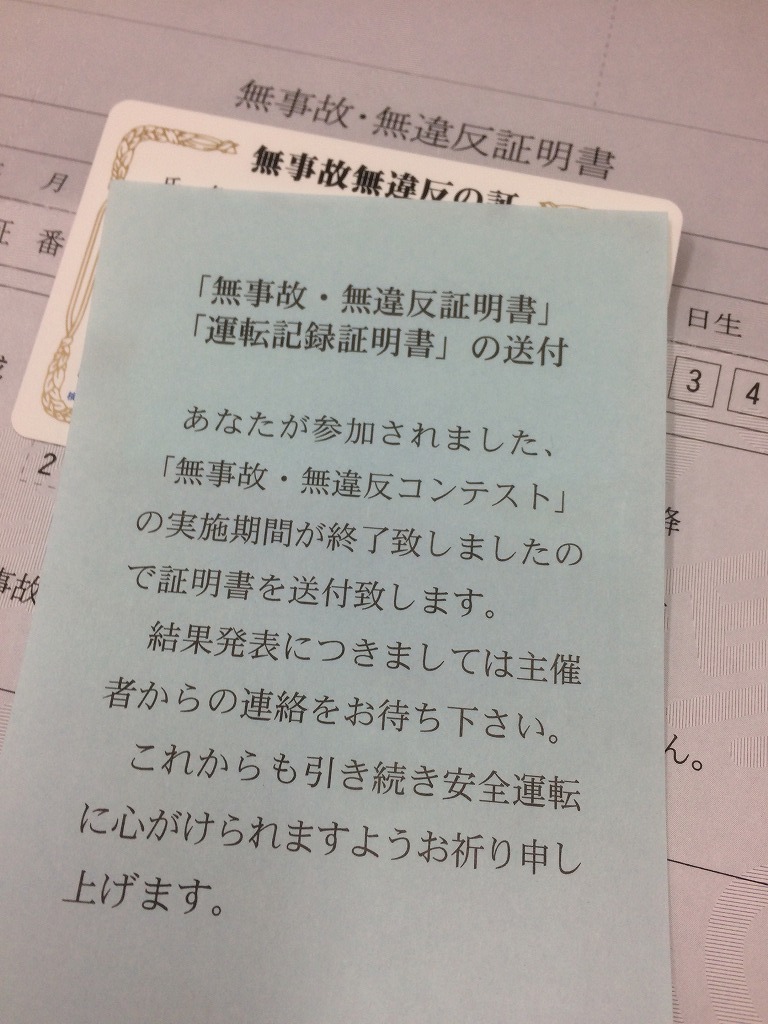 無事故・無違反証明書
無事故無違反の証
月
番
日生
3 4
2
事故
ん。
「無事故・無違反証明書」
「運転記録証明書」の送付
あなたが参加されました、
「無事故・無違反コンテスト」
の実施期間が終了致しましたの
で証明書を送付致します。
結果発表につきましては主催
者からの連絡をお待ち下さい。
これからも引き続き安全運転
に心がけられますようお祈り申し
上げます。